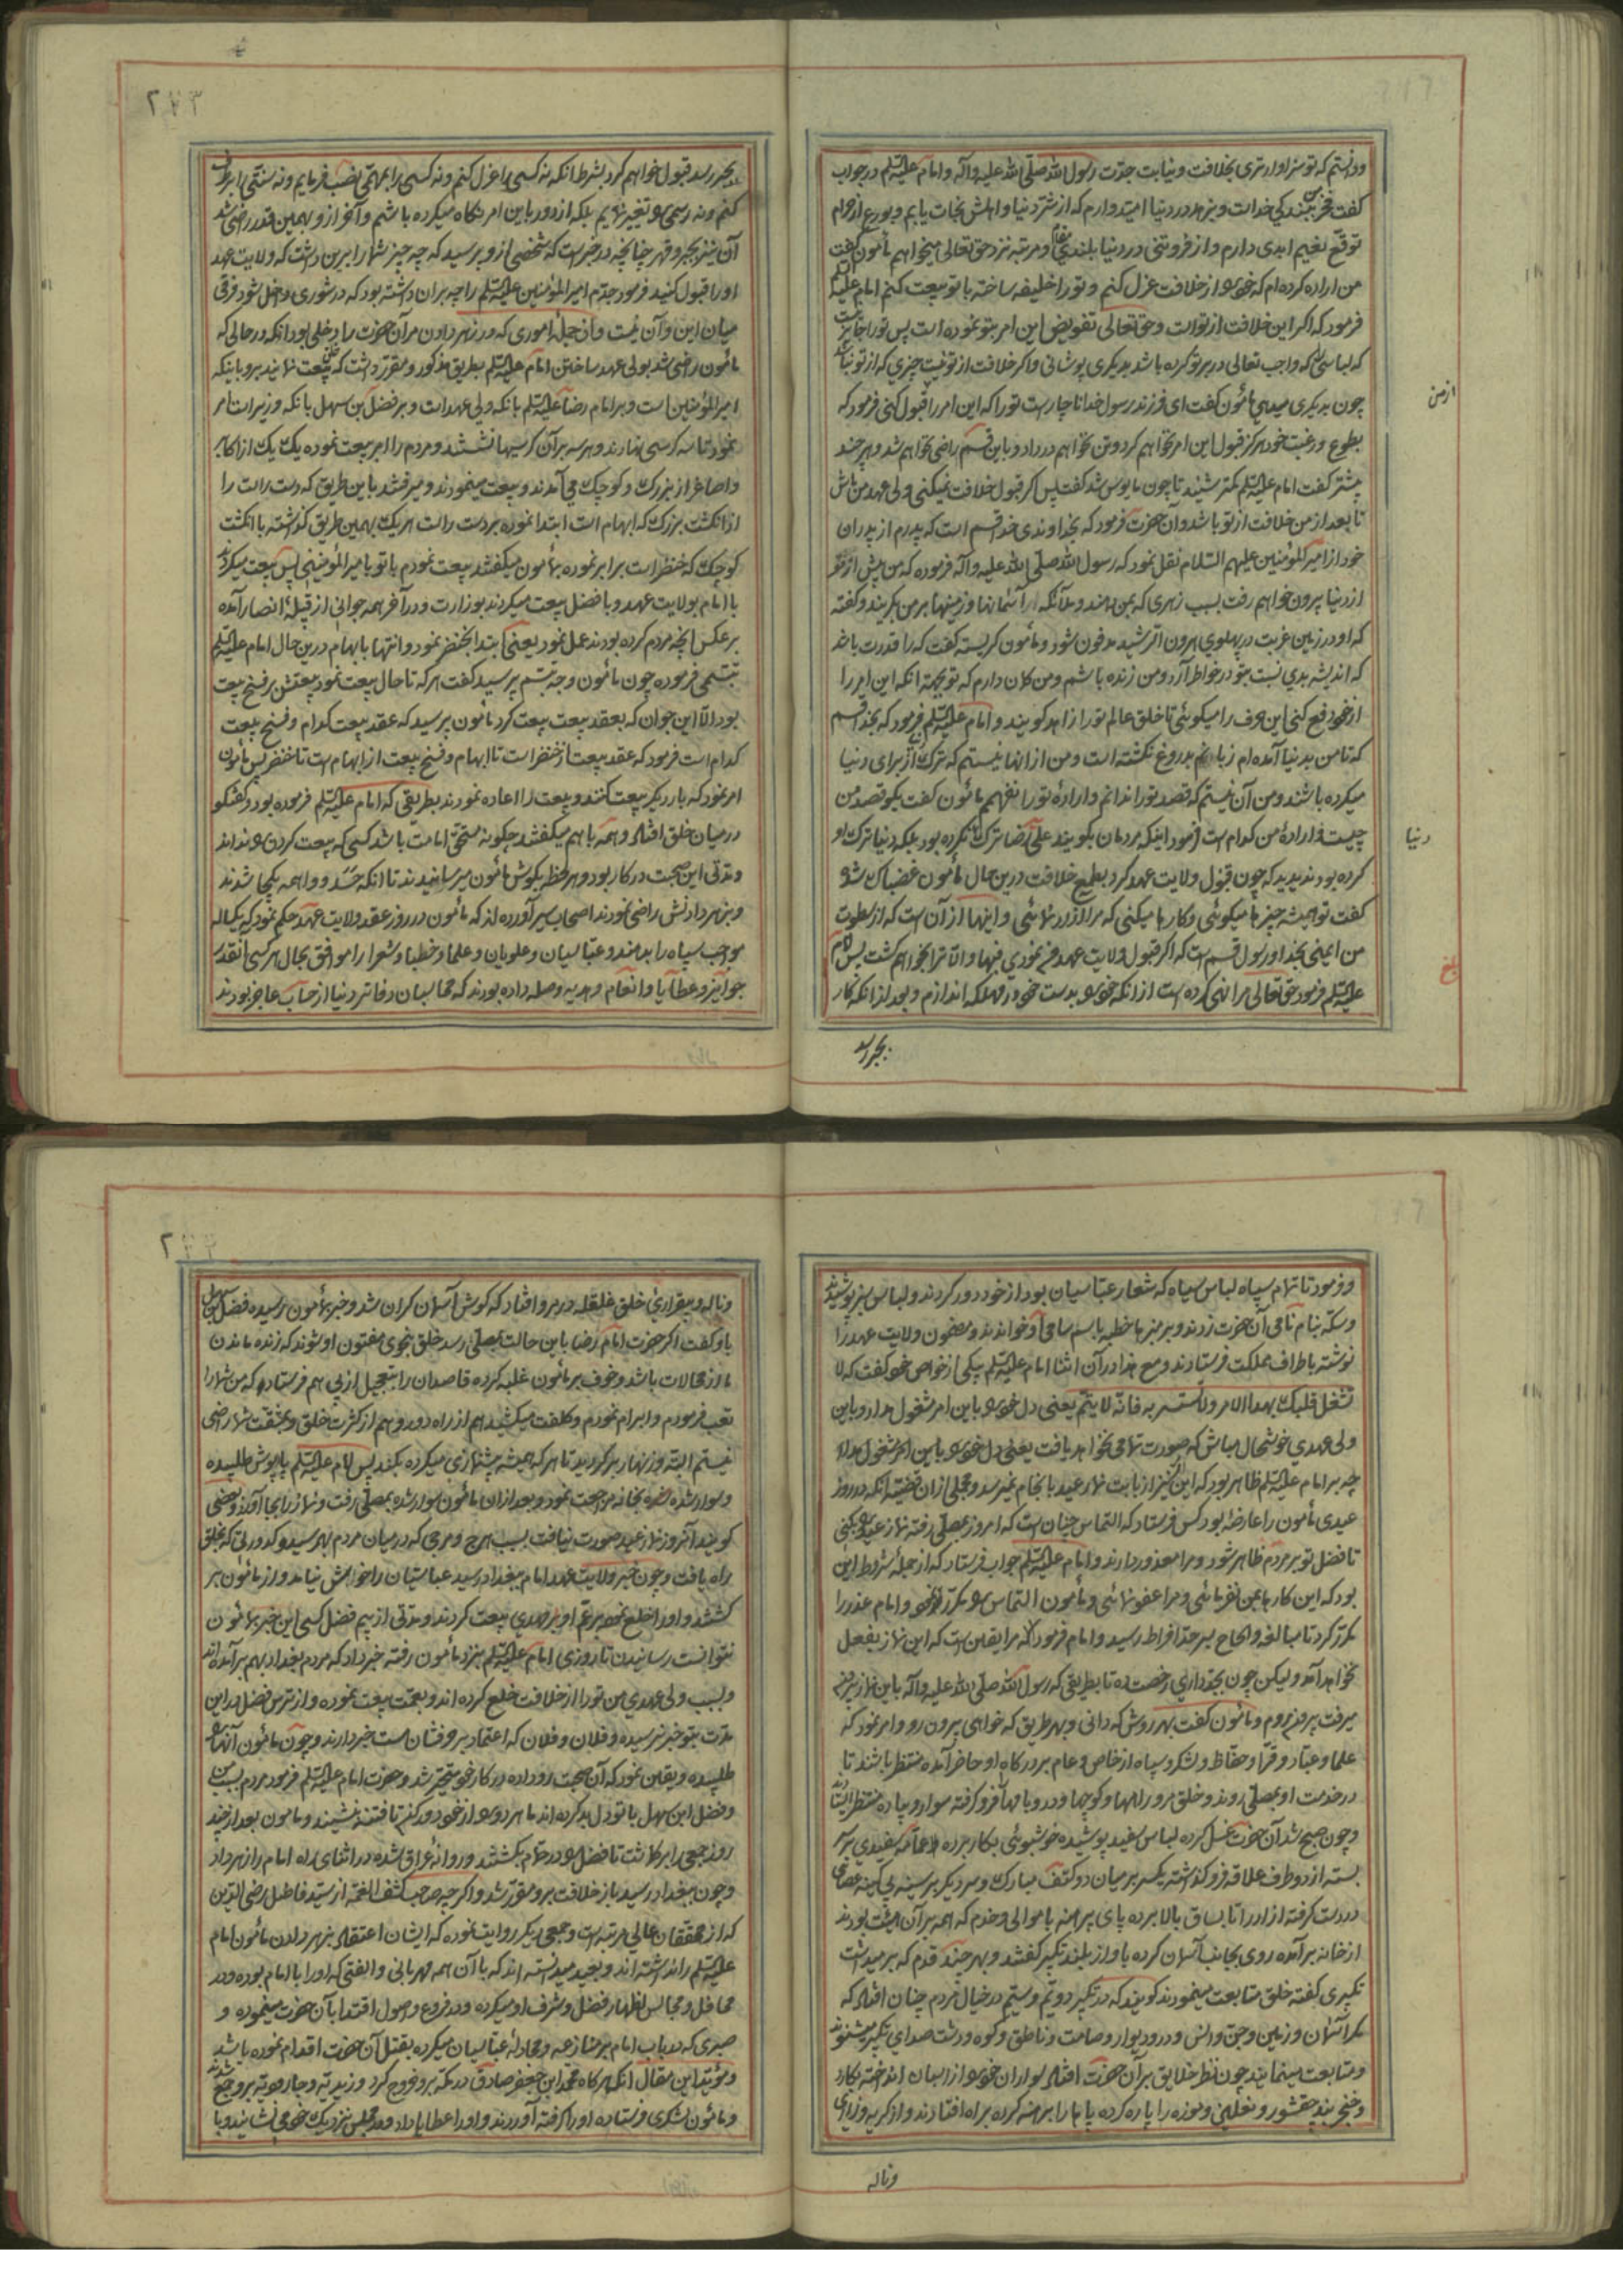 ودانستم که تو سزاوارتری بخلافت و نیابت جدّت رسول الله صلّی الله علیه وآله وامام علیه السّلم در جواب
کفت فخر من ببندکی خداست و بزهد در دنیا امیدوارم که از شرّ دنیا و اهلش نجات یابم و بورع از حرام
توقّع نعیم ابدی دارم و از فروتنی در دنیا بلندی مقام و مرتبه نزد حق تعالی میخواهم مأمون کفت
من اراده کرده ام که خود را از خلافت عزل کنم و تو را خلیفه ساخته با تو بیعت کنم امام علیه السلم
فرمود که اکر این خلافت از تو است و حق تعالی تفویض این امر بتو نموده است پس تو را جایز نیست
که لباسی را که واجب تعالی در بر تو کرده باشد بدیکری پوشانی و اکر خلافت از تو نیست چیزی که از تو نباشد
چون بدیکری میدهی مأمون کفت ای فرزند رسول خدا ناچار است تو را که این امر را قبول کنی فرمود که
بطوع و رغبت خود هرکز قبول این امر نخواهم کرد و تن نخواهم در داد و باین قسم راضی نخواهم شد و هر چند
بیشتر کفت امام علیه السّلم کمتر شنید تا چون مایوس شد کفت پس اکر قبول خلافت نمیکنی ولی عهد من باش
تا بعد از من خلافت از تو باشد و آن حضرت فرمود که بخداوندی خدا قسم است که پدرم از پدران
خود از امیر المؤمنین علیهم السّلام نقل نمود که رسول الله صلّی الله علیه وآله فرموده که من پیش از تو
از دنیا بیرون خواهم رفت بسبب زهری که بمن دهند و ملائکه آسمانها و زمینها بر من بکریند و کفته
که او در زمین غربت در پهلوی هرون الرشید مدفون شود و مأمون کریسته کفت که را قدرت باشد
که اندیشه بدی نسبت بتو در خاطر آرد و من زنده باشم و من کمان دارم که تو بجهة انکه این امر را
از خود دفع کنی این حرف را میکوئی تا خلق عالم تو را زاهد کویند و امام علیه السّلم فرمود که بخدا قسم
که تا من بدنیا آمده ام زبانم بدروغ نکشته است و من از انها نیستم که ترک دنیا از برای دنیا
میکرده باشند و من آن نیستم که قصد تو را ندانم و اراده تو را نفهمم مأمون کفت بکو قصد من
چیست و اراده من کدام است فرمود اینکه مردمان بکویند علی رضا ترک دنیا نکرده بود بلکه دنیا ترک او
کرده بود ندیدید که چون قبول ولایت عهد کرد بطمع خلافت درین حال مأمون غضبناک شد و
کفت تو همیشه چیزها میکوئی و کارها میکنی که مرا از آن رنجانی و اینها از آن است که از سطوت
من ایمنی بخدا و رسول قسم است که اکر قبول ولایت عهد من نمودی فبها و الّا ترا بخواهم کشت پس امام
علیه السّلم فرمود حق تعالی مرا نهی کرده است از انکه خود را بدست خود در مهلکه اندازم و بعد از انکه کار
بجبر رسد
از من
دنیا
۲۷۳
بجبر رسد قبول خواهم کرد بشرط انکه نه کسی را عزل کنم و نه کسی را بمهمّی نصب فرمایم و نه سنّتی را برطرف
کنم و نه رسمی را تغییر نمایم بلکه از دور باین امر نکاه میکرده باشم و آخر از و بهمین قدر راضی شد
آن نیز بجبر و قهر چنانچه در خبر است که شخصی از و پرسید که چه چیز شما را برین داشت که ولایت عهد
او را قبول کنید فرمود جدّم امیر المؤمنین علیه السّلم را چه بران داشته بود که در شوری داخل شود فرقی
میان این و آن نیست و از جمله اموری که در زهر دادن مرآن حضرت را دخلی بود انکه در حالی که
مأمون راضی شد بولی عهد ساختن امام علیه السّلم بطریق مذکور و مقرّر داشت که خلق بیعت نمایند برو باینکه
امیر المؤمنین است و بر امام رضا علیه السّلم بانکه ولی عهد است و بر فضل بن سهل بانکه وزیر است امر
نمود تا سه کرسی نهادند و هر سه بر آن کرسیها نشستند و مردم را امر بیعت نموده یک یک از اکابر
و اصاغر از بزرک و کوچک می آمدند و بیعت مینمودند و میرفتند باین طریق که دست راست را
از انکشت بزرک که ابهام است ابتدا نموده بر دست راست هر یک بهمین طریق کذشته با انکشت
کوچک که خنصر است برابر نموده بمأمون میکفتند بیعت نمودم با تو یا میر المؤمنین پس بیعت میکردند
با امام بولایت عهد و با فضل بیعت میکردند بوزارت و در آخر همه جوانی از قبیله انصار آمده
بر عکس انچه مردم کرده بودند عمل نمود یعنی ابتدا بخنصر نمود و انتها بابهام درین حال امام علیه السّلم
تبسّمی فرموده چون مأمون وجه تبسّم پرسید کفت هر که تا حال بیعت نمود بیعتش بر فسخ بیعت
بود الّا این جوان که بعقد بیعت بیعت کرد مأمون پرسید که عقد بیعت کدام و فسخ بیعت
کدام است فرمود که عقد بیعت از خنصر است تا ابهام و فسخ بیعت از ابهام است تا خنصر پس مأمون
امر نمود که بار دیکر بیعت کنند و بیعت را اعاده نمودند بطریقی که امام علیه السّلم فرموده بود و کفتکو
در میان خلق افتاد و همه باهم میکفتند چکونه مستحقّ امامت باشد کسی که بیعت کردن را نداند
و مدّتی این صحبت در کار بود و هر لحظه بکوش مأمون میرسانیدند تا انکه حسد و واهمه یکجا شدند
و بزهر دادنش راضی نمودند اصحاب سیر آورده اند که مأمون در روز عقد ولایت عهد حکم نمود که یکساله
مواجب سپاه را بدهند و عبّاسیان و علویان و علما و خطبا و شعرا را موافق بحال هر کسی انقدر
جوایز و عطایا و انعام و هدیه و صله داده بودند که محاسبان دفاتر دنیا از حساب عاجز بودند
و فرمود تا تمام سپاه لباس سیاه که شعار عبّاسیان بود از خود دور کردند و لباس سبز پوشیدند
و سکّه بنام نامی آن حضرت زدند و بر منبرها خطبه باسم سامی او خواندند و مضمون ولایت عهد را
نوشته باطراف مملکت فرستادند و مع هذا در آن اثنا امام علیه السّلم بیکی از خواص خود کفت که لا
تشغل قلبک بهذا الامر ولا تستبشر به فانّه لا یتمّ یعنی دل خود را باین امر مشغول مدار و باین
ولی عهدی خوشحال مباش که صورت تمامی نخواهد یافت یعنی دل خود را باین امر مشغول مدار
چه بر امام علیه السّلم ظاهر بود که این نیز از بابت نماز عید بانجام نمیرسد و مجملی از ان قضیّه انکه در روز
عیدی مأمون را عارضه بود کس فرستاد که التماس چنان است که امروز بمصلّی رفته نماز عید را بکنی
تا فضل تو بر مردم ظاهر شود و مرا معذور دارند و امام علیه السّلم جواب فرستاد که از جمله شروط این
بود که این کارها بمن نفرمائی و مرا عفو نمائی و مأمون التماس را مکرّر نمود و امام عذر را
مکرّر کرد تا مبالغه و الحاح بسر حدّ افراط رسید و امام فرمود که مرا یقین است که این نماز بفعل
نخواهد آمد ولیکن چون بجدّ داری رخصت ده تا بطریقی که رسول الله صلّی الله علیه وآله باین نماز بیرون
میرفت بیرون روم و مأمون کفت بهر روش که دانی و بهر طریق که خواهی بیرون رو و امر نمود که
علما و عبّاد و قرّا و حفّاظ و لشکر و سپاه از خاص و عام بر درکاه او حاضر آمده منتظر باشند تا
در خدمت او بمصلّی روند و خلق بر سر راهها و کوچها و در و بامها فرو کرفته سوار و پیاده منتظر ایستادند
و چون صبح شد آن حضرت غسل کرده لباس سفید پوشیده خوشبوئی بکار برده عمامه سفیدی بر سر
بسته از دو طرف علاقه فرو کذاشته یکسر بر میان دو کتف مبارک و سر دیکر بر سینه بی کینه عصائی
در دست کرفته ازار را تا بساق بالا برده پای برهنه با موالی و خدم که همه بر آن هیئت بودند
از خانه برآمده روی بجانب آسمان کرده باواز بلند تکبیر کفتند و بهر چند قدم که بر میداشت
تکبیری کفته خلق متابعت مینمودند کویند که در تکبیر دویّم و سیّم در خیال مردم چنان افتاد که
مکر آسمان و زمین و جنّ و انس و در و دیوار و صامت و ناطق و کوه و دشت صدای تکبیر میشنوند
و متابعت مینمایند چون نظر خلایق بر آن حضرت افتاد سواران خود را از اسبان انداخته بکارد
و خنجر بند چقشور و نعلین و موزه را پاره کرده پاها را برهنه کرده براه افتادند و از کریه و زاری
و ناله
و ناله و بیقراری خلق غلغله در مرو افتاد که کوش آسمان کران شد و خبر بمأمون رسیده فضل بن سهل
باو کفت اکر حضرت امام رضا باین حالت بمصلّی رسد خلق بنحوی مفتون او شوند که زنده ماندن
ما از محالات باشد و خوف بر مأمون غلبه کرده قاصدان را بتعجیل از پی هم فرستاد که من شما را
تعب فرمودم و ابرام نمودم و کلفت میکشید هم از راه دور و هم از کثرت خلق و بمشقّت شما راضی
نیستم البتّه و زنهار بر کردید تا هر که همیشه پیشنمازی میکرده بکند پس امام علیه السّلم پاپوش طلبیده
و سوار شده بخانه مراجعت نمود و بعد از ان مأمون سوار شده بمصلّی رفت و نماز را بجا آورد و بعضی
کویند آنروز نماز عید صورت نیافت بسبب هرج و مرجی که در میان مردم بهم رسید و کدورتی که بخلق
راه یافت و چون خبر ولایت عهد امام ببغداد رسید عبّاسیان را خوش نیامد و از مأمون بر
کشتند و او را خلع نموده بر عمّ او ابن مهدی بیعت کردند و مدّتی از بیم فضل کسی این خبر بمأمون
نتوانست رسانیدن تا روزی امام علیه السّلم بنزد مأمون رفته خبر داد که مردم بغداد بهم برآمده اند
و بسبب ولی عهدی من تو را از خلافت خلع کرده اند و بعمّت بیعت نموده و از ترس فضل در این
مدّت بتو خبر نرسیده و فلان و فلان که اعتماد بروفشان است خبر دارند و چون مأمون آنها را
طلبیده و یقین نمود که آن صحبت رو داده در کار خود متحیّر شد و حضرت امام علیه السّلم فرمود مردم بسبب من
و فضل ابن سهل با تو دل بد کرده اند ما هر دو را از خود دور کن تا فتنه بنشیند و مامون بعد از چند
روز جمعی را بر کماشت تا فضل را در حمّام بکشتند و روانه عراق شده در اثنای راه امام را زهر داد
و چون ببغداد رسید باز خلافت برو مقرّر شد و اکر چه صاحب کشف الغمّه از سیّد فاضل رضی الدّین
که از محقّقان عالی مرتبه است و جمعی دیکر روایت نموده که ایشان اعتقاد بزهر دادن مأمون امام
علیه السّلم را نداشته اند و بعید میدانسته اند که با آن همه مهربانی و الفتی که او را با امام بوده و در
محافل و مجالس اظهار فضل و شرف او میکرده و در فروع و اصول اقتدا بآن حضرت مینموده و
صبری که در باب امام بر منازعه و مجادله عبّاسیان میکرده بقتل آن حضرت اقدام نموده باشد
و مؤیّد این مقال انکه هرکاه محمّد ابن جعفر صادق در مکّه برو خروج کرد و زیدیّه و جارودیّه برو جمع شدند
و مأمون لشکری فرستاده او را کرفته آوردند و او را عطایا داد و در مجلس نزدیک خود می نشانید و با